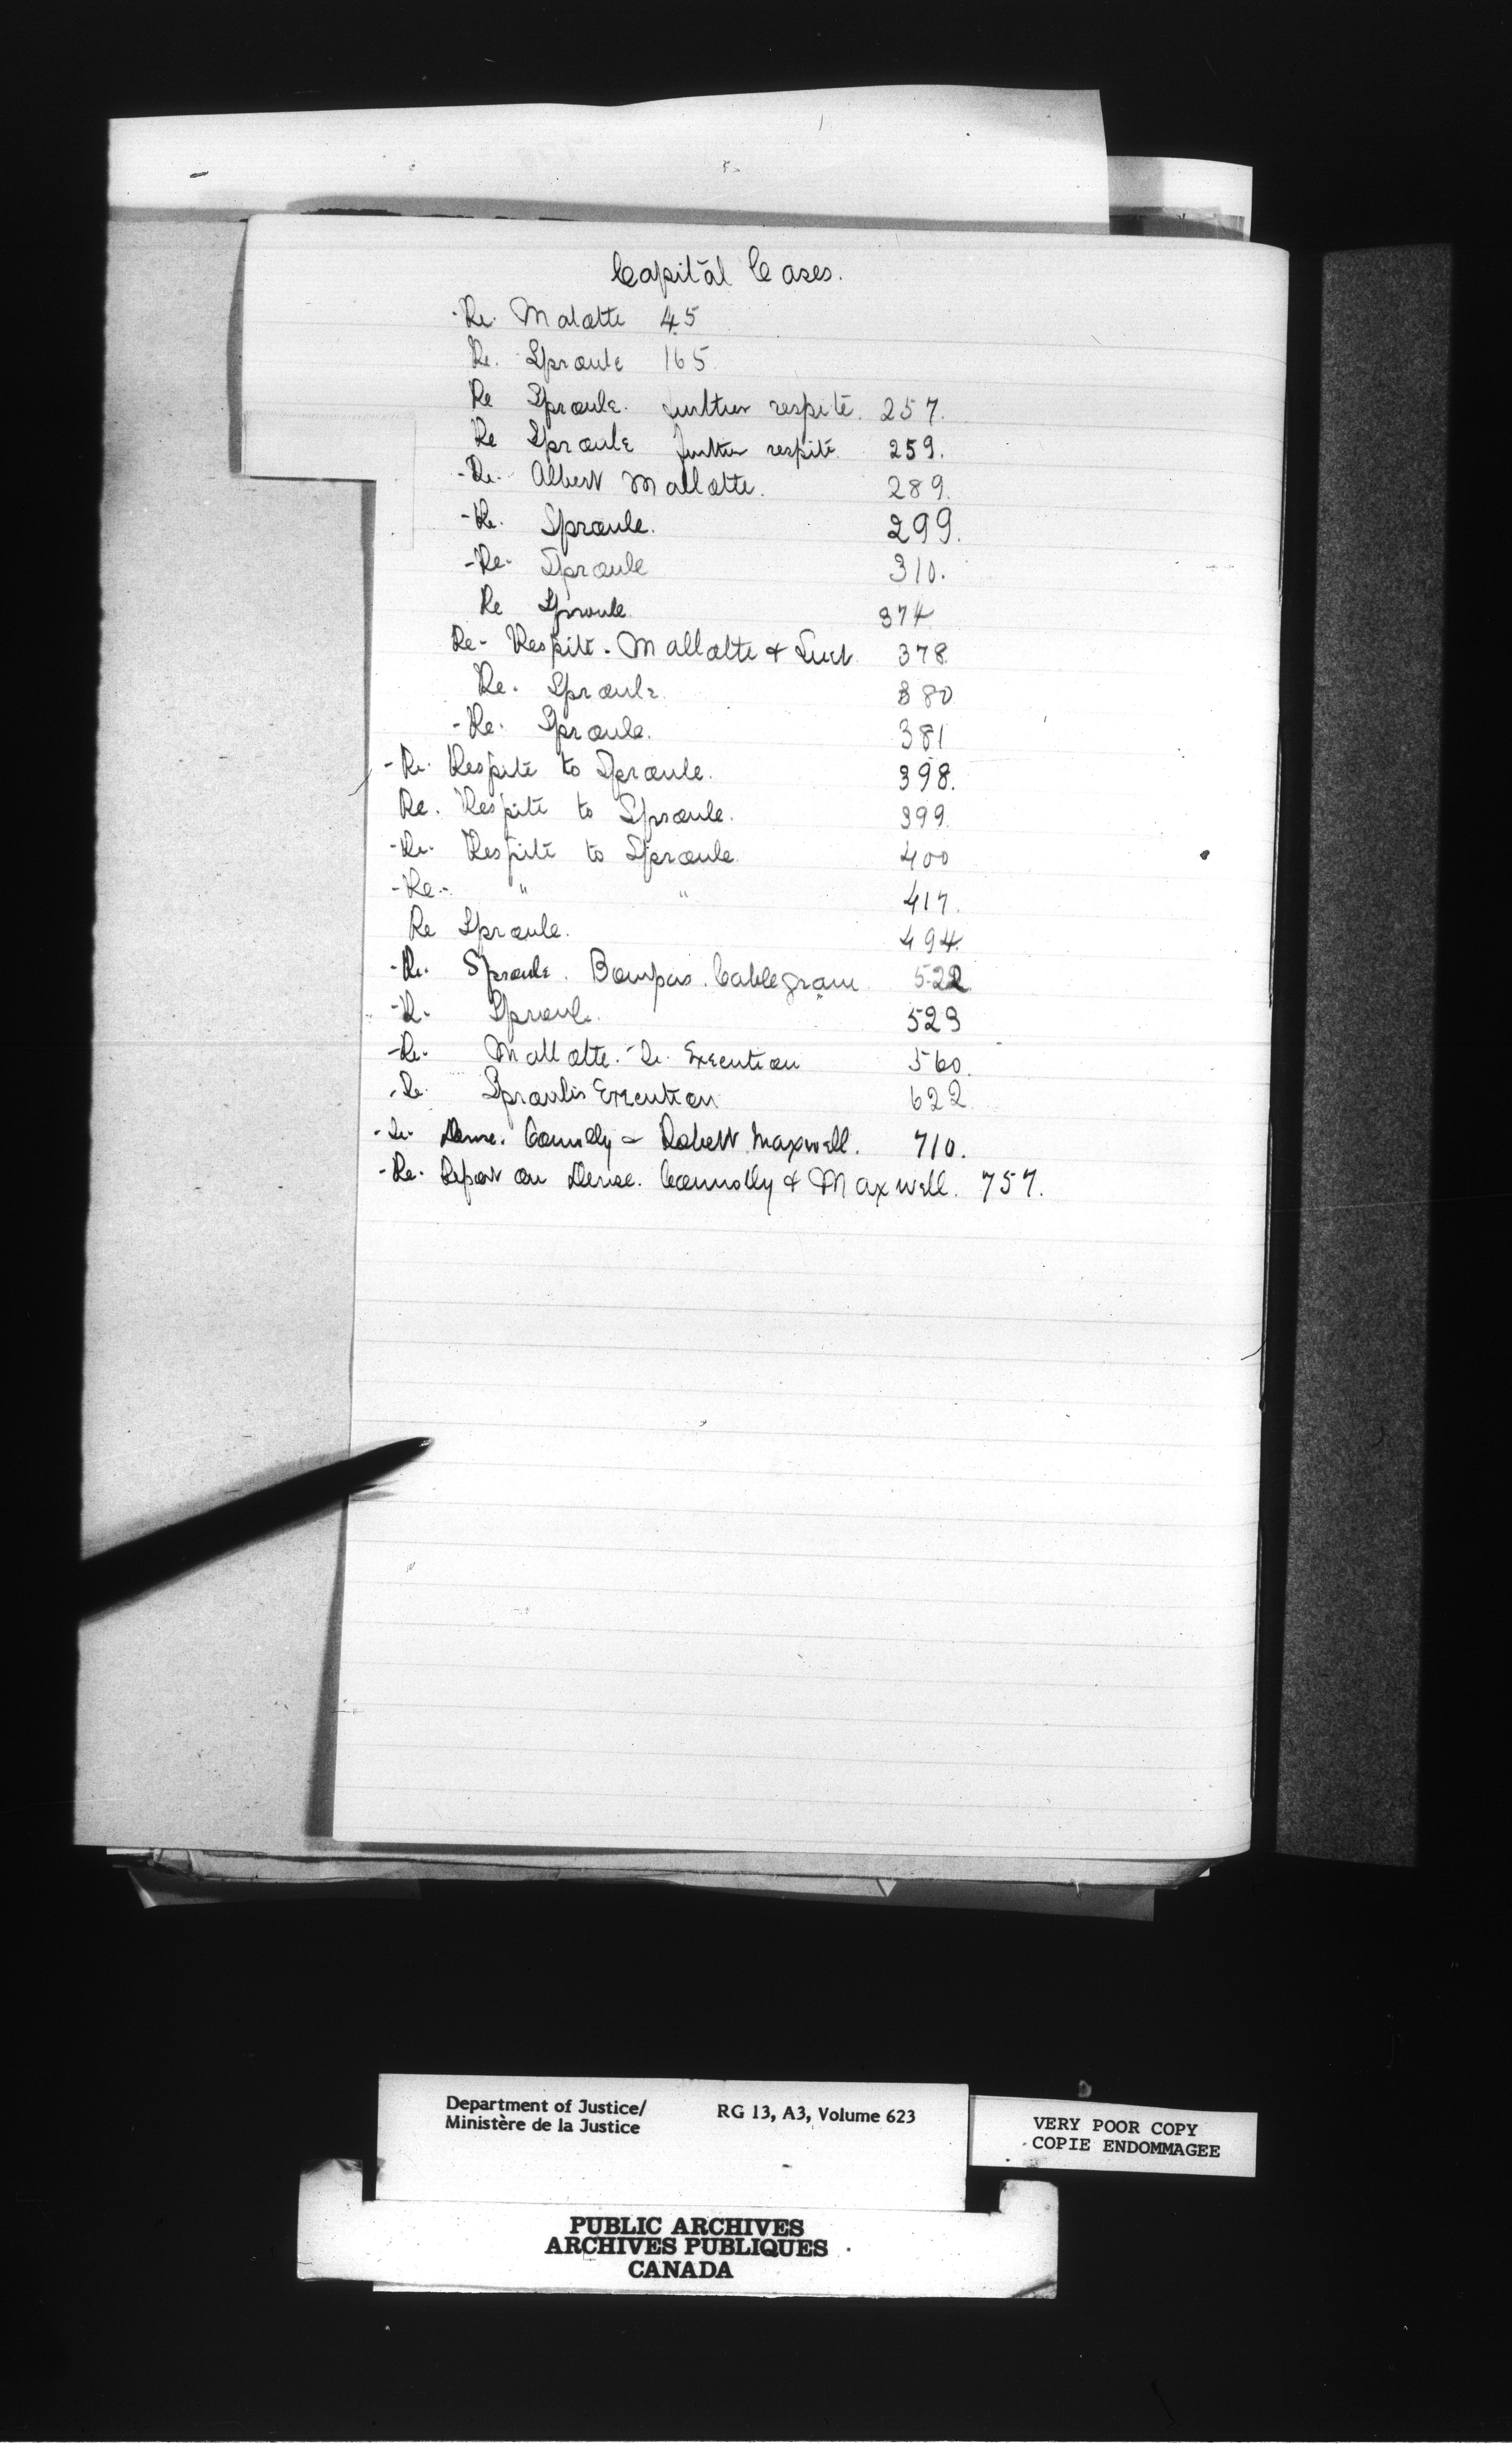 Capital Cases.
-Re. Malatte 45
Re. Sproule 165
Re Sproule. further respite. 257.
Re Sproule further respite 259.
-Re. Albert Mallatte. 289.
-Re. Sproule. 299.
-Re. Sproule 310.
Re Sproule 374
Re- Respite. Mallatte & 378
Re. Sproule. 380
-Re. Sproule. 381
-Re. Respite to Sproule. 398.
Re. Respite to Sproule. 399.
-Re. Respite to Sproule 400
-Re- " " 417.
Re Sproule. 494.
-Re. Sproule. Bompas. Cablegram 522
-R. Sproule. 523
-Re. Mallatte. - Re. Execution 560.
-Re. Sproule's Execution 622
-Re. Connolly & Robert Maxwell. 710.
-Re. Report on Connolly & Maxwell. 757.
Department of Justice/ RG 13, A3, Volume 623
Ministère de la Justice
VERY POOR COPY
COPIE ENDOMMAGEE
PUBLIC ARCHIVES
ARCHIVES PUBLIQUES
CANADA